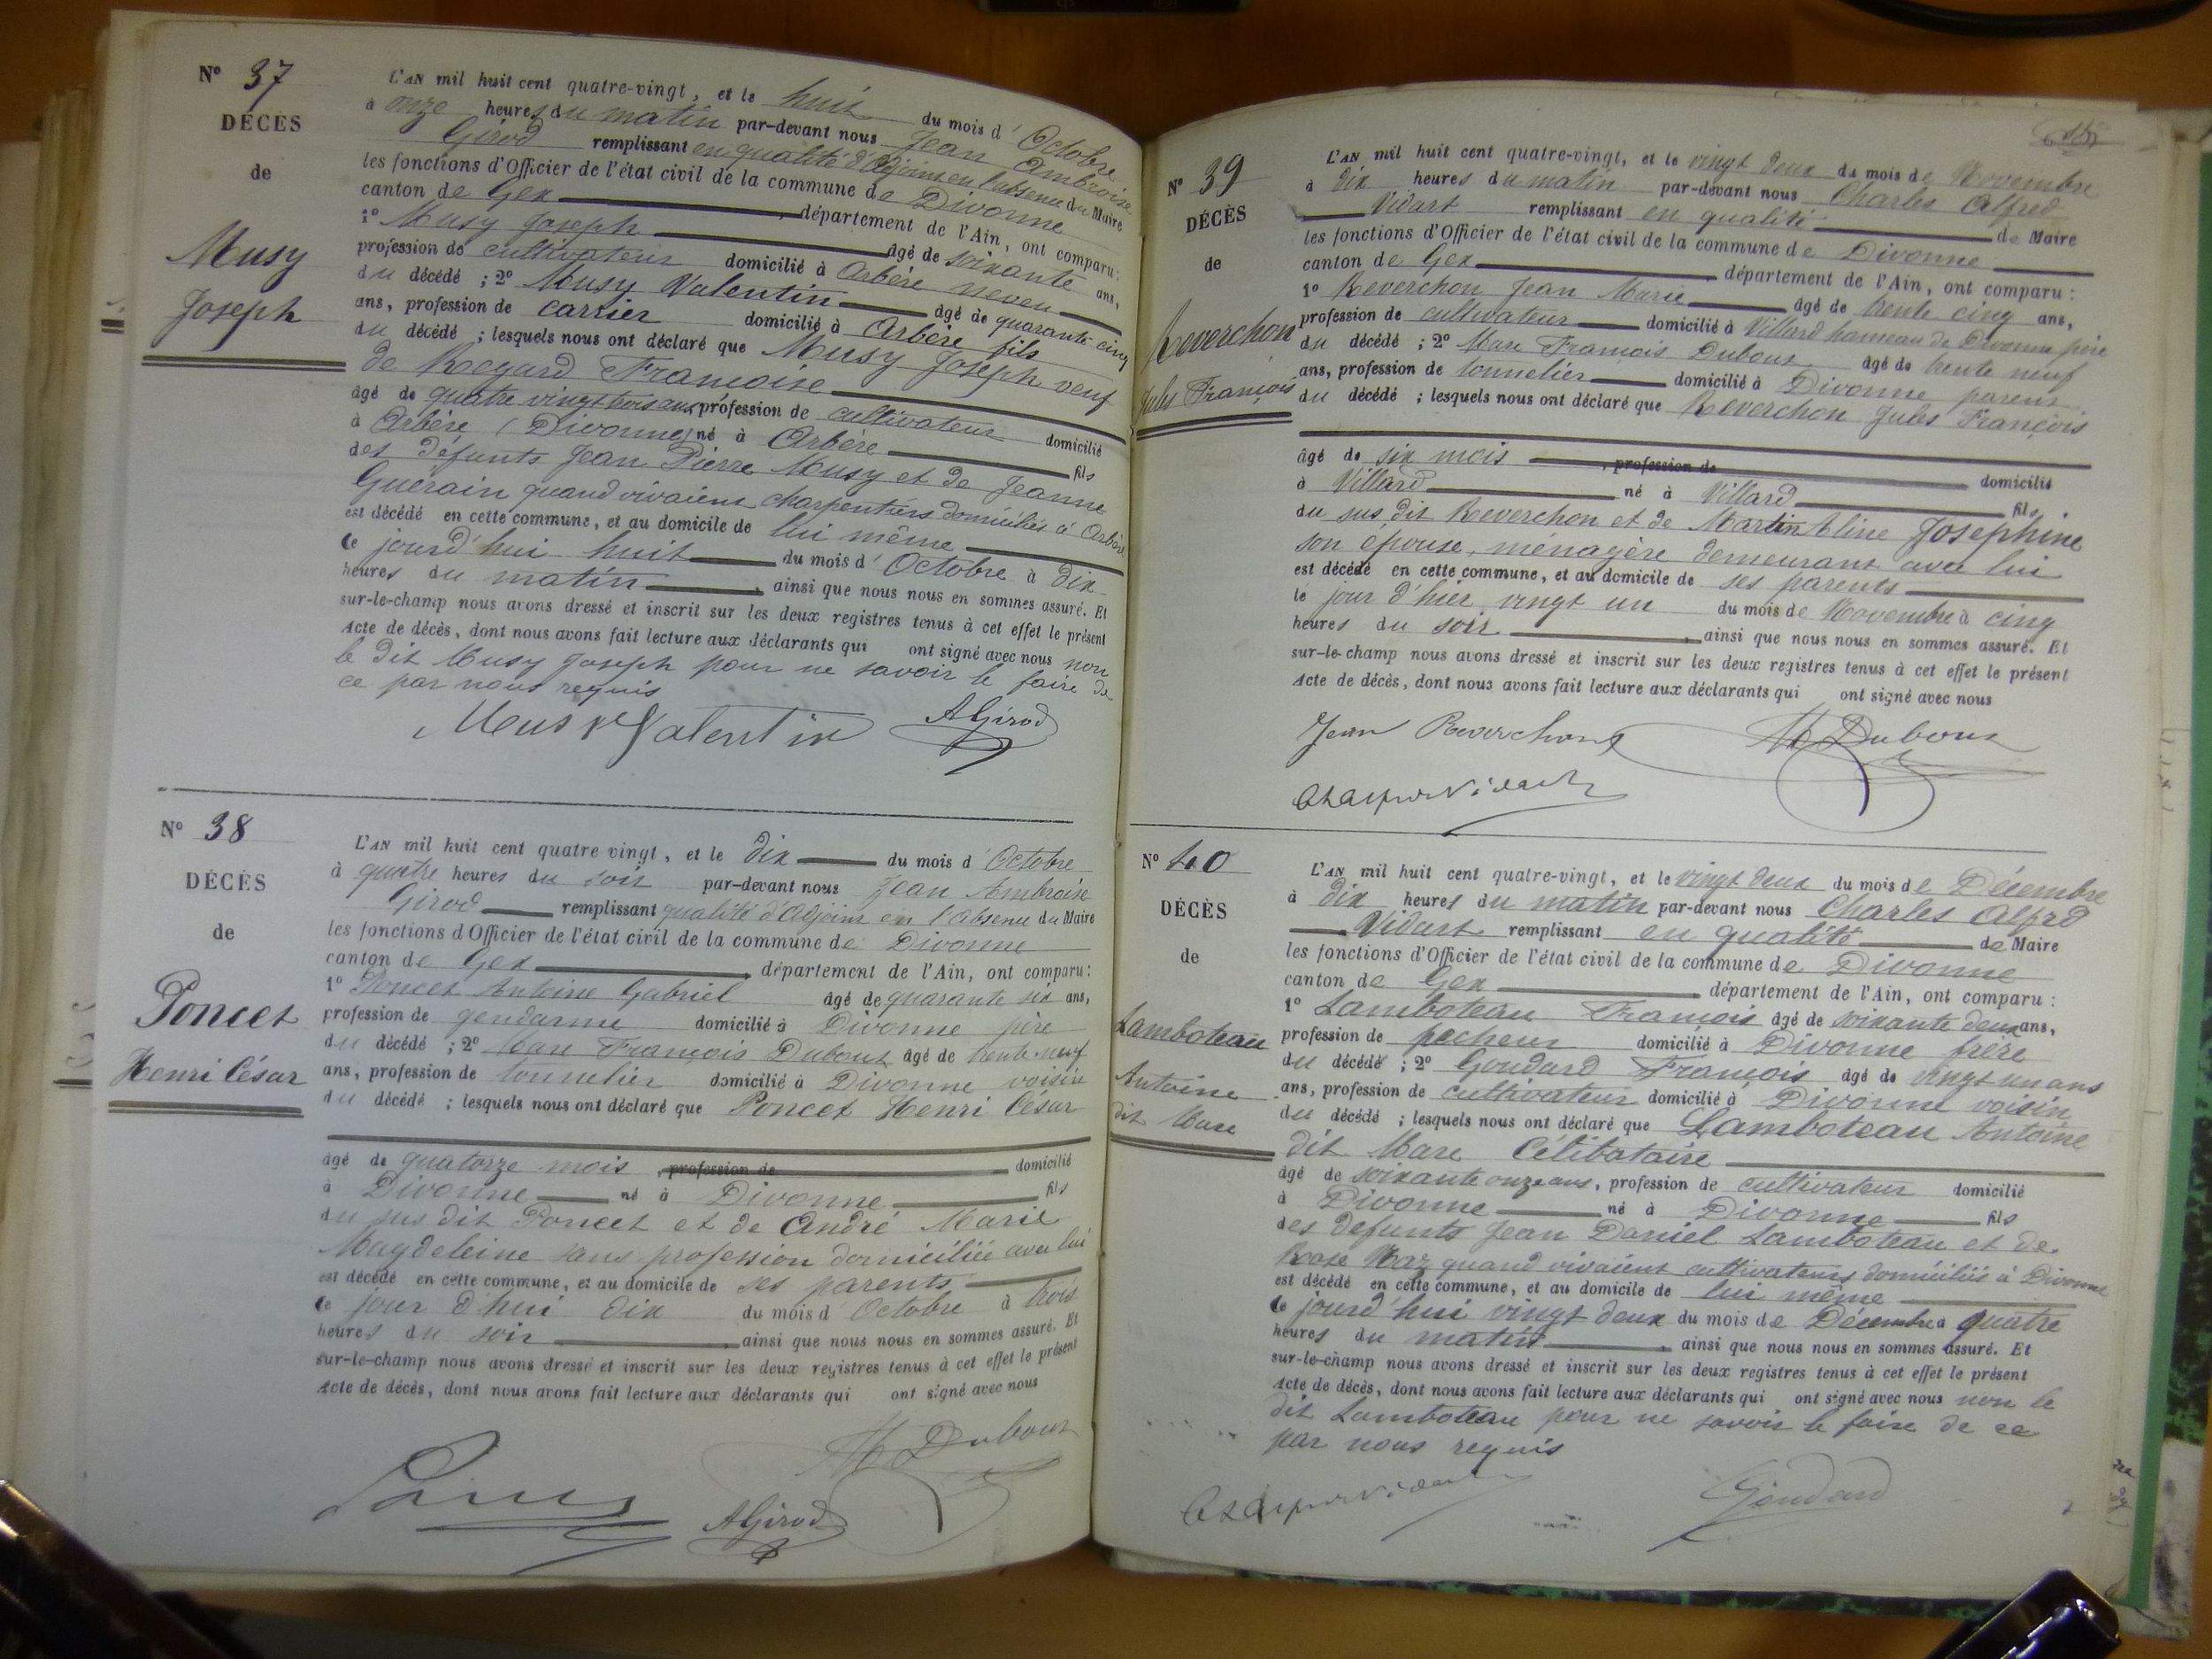 N° 37
DÉCÈS
de
Musy
Joseph
L'AN mil huit cent quatre-vingt, et le huit du mois d'Octobre
à onze heures du matin par-devant nous Jean Ambroise
Girod remplissant en qualité d'Adjoint en l'absence du Maire
les fonctions d'Officier de l'état civil de la commune de Divonne
canton de Gex département de l'Ain, ont comparu:
1° Musy Joseph âgé de soixante ans,
profession de cultivateur domicilié à Arbère neveu
du décédé ; 2° Musy Valentin âgé de quarante cinq
ans, profession de carrier domicilié à Arbère fils
du décédé ; lesquels nous ont déclaré que Musy Joseph veuf
de Regard Françoise
âgé de quatre vingt trois ans, profession de cultivateur domicilié
à Arbère (Divonne) né à Arbère fils
des défunts Jean Pierre Musy et de Jeanne
Guerain quand vivaient charpentiers domiciliés à Arbère
est décédé en cette commune, et au domicile de lui même
ce jourd'hui huit du mois d'Octobre à dix
heures du matin, ainsi que nous nous en sommes assuré. Et
sur-le-champ nous avons dressé et inscrit sur les deux registres tenus à cet effet le présent
Acte de décès, dont nous avons fait lecture aux déclarants qui ont signé avec nous non
le dit Musy Joseph pour ne savoir le faire de
ce par nous requis
Musy Valentin AGirod
N° 38
DÉCÈS
de
Poncet
Henri César
L'AN mil huit cent quatre vingt, et le dix du mois d'Octobre
à quatre heures du soir par-devant nous Jean Ambroise
Girod remplissant qualité d'Adjoint en l'Absence du Maire
les fonctions d'Officier de l'état civil de la commune de Divonne
canton de Gex, département de l'Ain, ont comparu:
1° Poncet Antoine Gabriel âgé de quarante six ans,
profession de gendarme domicilié à Divonne père
du décédé ; 2° Marc François Dubout âgé de trente-neuf
ans, profession de tonnelier domicilié à Divonne voisin
du décédé ; lesquels nous ont déclaré que Poncet Henri César
âgé de quatorze mois, profession de domicilié
à Divonne né à Divonne fils
du sus dit Poncet et de André Marie
Magdeleine sans profession domiciliée avec lui
est décédé en cette commune, et au domicile de ses parents
ce jour d'hui dix du mois d'Octobre à trois
heures du soir, ainsi que nous nous en sommes assuré. Et
sur-le-champ nous avons dressé et inscrit sur les deux registres tenus à cet effet le présent
Acte de décès, dont nous avons fait lecture aux déclarants qui ont signé avec nous
M Dubout
AGirod
N° 39
DÉCÈS
de
Reverchon
Jules François
L'AN mil huit cent quatre-vingt, et le vingt deux du mois de Novembre
à dix heures du matin par-devant nous Charles Alfred
Vidart remplissant en qualité de Maire
les fonctions d'Officier de l'état civil de la commune de Divonne
canton de Gex département de l'Ain, ont comparu :
1° Reverchon Jean Marie âgé de trente cinq ans,
profession de cultivateur domicilié à Villard hameau de Divonne père
du décédé ; 2° Marc François Dubout âgé de trente neuf
ans, profession de tonnelier domicilié à Divonne parent
du décédé ; lesquels nous ont déclaré que Reverchon Jules François
âgé de six mois, profession de domicilié
à Villard né à Villard fils
du sus dit Reverchon et de Martin Aline Josephine
son épouse, ménagère demeurant avec lui
est décédé en cette commune, et au domicile de ses parents
le jour d'hier vingt un du mois de Novembre à cinq
heures du soir, ainsi que nous nous en sommes assuré. Et
sur-le-champ nous avons dressé et inscrit sur les deux registres tenus à cet effet le présent
Acte de décès, dont nous avons fait lecture aux déclarants qui ont signé avec nous
Jean Reverchon M Dubout
N° 40
DÉCÈS
de
Lamboteau
Antoine
dit Marc
L'AN mil huit cent quatre-vingt, et le vingt deux du mois de Décembre
à dix heures du matin par-devant nous Charles Alfrd
Vidart remplissant en qualité de Maire
les fonctions d'Officier de l'état civil de la commune de Divonne
canton de Gex département de l'Ain, ont comparu :
1° Lamboteau François âgé de soixante deux ans,
profession de pecheur domicilié à Divonne frère
du décédé ; 2° Goudard François âgé de vingt un ans
ans, profession de cultivateur domicilié à Divonne voisin
du décédé ; lesquels nous ont déclaré que Lamboteau Antoine
dit Marc Célibataire
âgé de soixante onze ans, profession de cultivateur domicilié
à Divonne né à Divonne fils
des defunts Jean Daniel Lamboteau et de
Rose quand vivaient cultivateurs domiciliés à Divonne
est décédé en cette commune, et au domicile de lui même
ce jourd'hui vingt deux du mois de Décembre à quatre
heures du matin, ainsi que nous nous en sommes assuré. Et
sur-le-champ nous avons dressé et inscrit sur les deux registres tenus à cet effet le présent
Acte de décès, dont nous avons fait lecture aux déclarants qui ont signé avec nous non le
dit Lamboteau pour ne savoir le faire de ce
par nous requis
Goudard